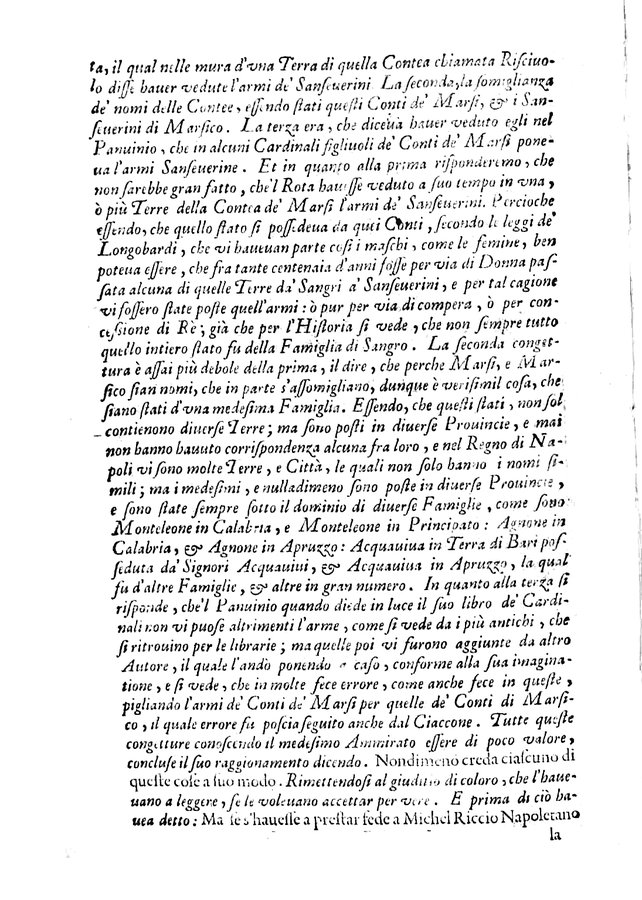 ta, il qual nelle mura d'vna Terra di quella Contea chiamata Risciuo-
lo disse hauer vedute l'armi de' Sanseuerini La seconda, la somiglianza
de' nomi delle Contee, essendo stati questi Conti de' Marsi, & i San-
seuerini di Marsico. La terza era, che diceua hauer veduto egli nel
Panuinio, che in alcuni Cardinali figliuoli de' Conti de' Marsi pone-
ua l'armi Sanseuerine. Et in quanto alla prima risponderemo, che
non sarebbe gran fatto, che'l Rota hauesse veduto a suo tempo in vna,
ò più Terre della Contea de' Marsi l'armi de' Sanseuerini. Percioche
essendo, che quello stato si possedeua da quei Conti, secondo le leggi de'
Longobardi, che vi haueuan parte così i maschi, come le femine, ben
poteua essere, che fra tante centenaia d'anni fosse per via di Donna pas-
sata alcuna di quelle Terre da' Sangri a' Sanseuerini, e per tal cagione
vi fossero state poste quell'armi: ò pur per via di compera, ò per con-
cessione di Rè; già che per l'Historia si vede, che non sempre tutto
quello intiero stato fu della Famiglia di Sangro. La seconda conget-
tura è assai più debole della prima, il dire, che perche Marsi, e Mar-
sico sian nomi, che in parte s'assomigliano, dunque è verisimil cosa, che
siano stati d'vna medesima Famiglia. Essendo, che questi stati, non sol
contienono diuerse Terre; ma sono posti in diuerse Prouincie, e mai
non hanno hauuto corrispondenza alcuna fra loro, e nel Regno di Na-
poli vi sono molte Terre, e Città, le quali non solo hanno i nomi si-
mili; ma i medesimi, e nulladimeno sono poste in diuerse Prouincie,
e sono state sempre sotto il dominio di diuerse Famiglie, come sono
Monteleone in Calabria, e Monteleone in Principato: Agnone in
Calabria, & Agnone in Apruzzo: Acquauiua in Terra di Bari pos-
seduta da' Signori Acquauiui, & Acquauiua in Apruzzo, la qual
fu d'altre Famiglie, & altre in gran numero. In quanto alla terza si
risponde, che'l Panuinio quando diede in luce il suo libro de' Cardi-
nali non vi puose altrimenti l'arme, come si vede da i più antichi, che
si ritrouino per le librarie; ma quelle poi vi furono aggiunte da altro
Autore, il quale l'andò ponendo a caso, conforme alla sua imagina-
tione, e si vede, che in molte fece errore, come anche fece in queste,
pigliando l'armi de' Conti de' Marsi per quelle de' Conti di Marsi-
co, il quale errore fu poscia seguito anche dal Ciaccone. Tutte queste
congetture conoscendo il medesimo Ammirato essere di poco valore,
concluse il suo raggionamento dicendo. Nondimeno creda ciascuno di
queste cose a suo modo. Rimettendosi al giuditio di coloro, che l'haue-
uano a leggere, se le voleuano accettar per vere. E prima di ciò ha-
uea detto: Ma se s'hauesse a prestar fede a Michel Riccio Napoletano
la